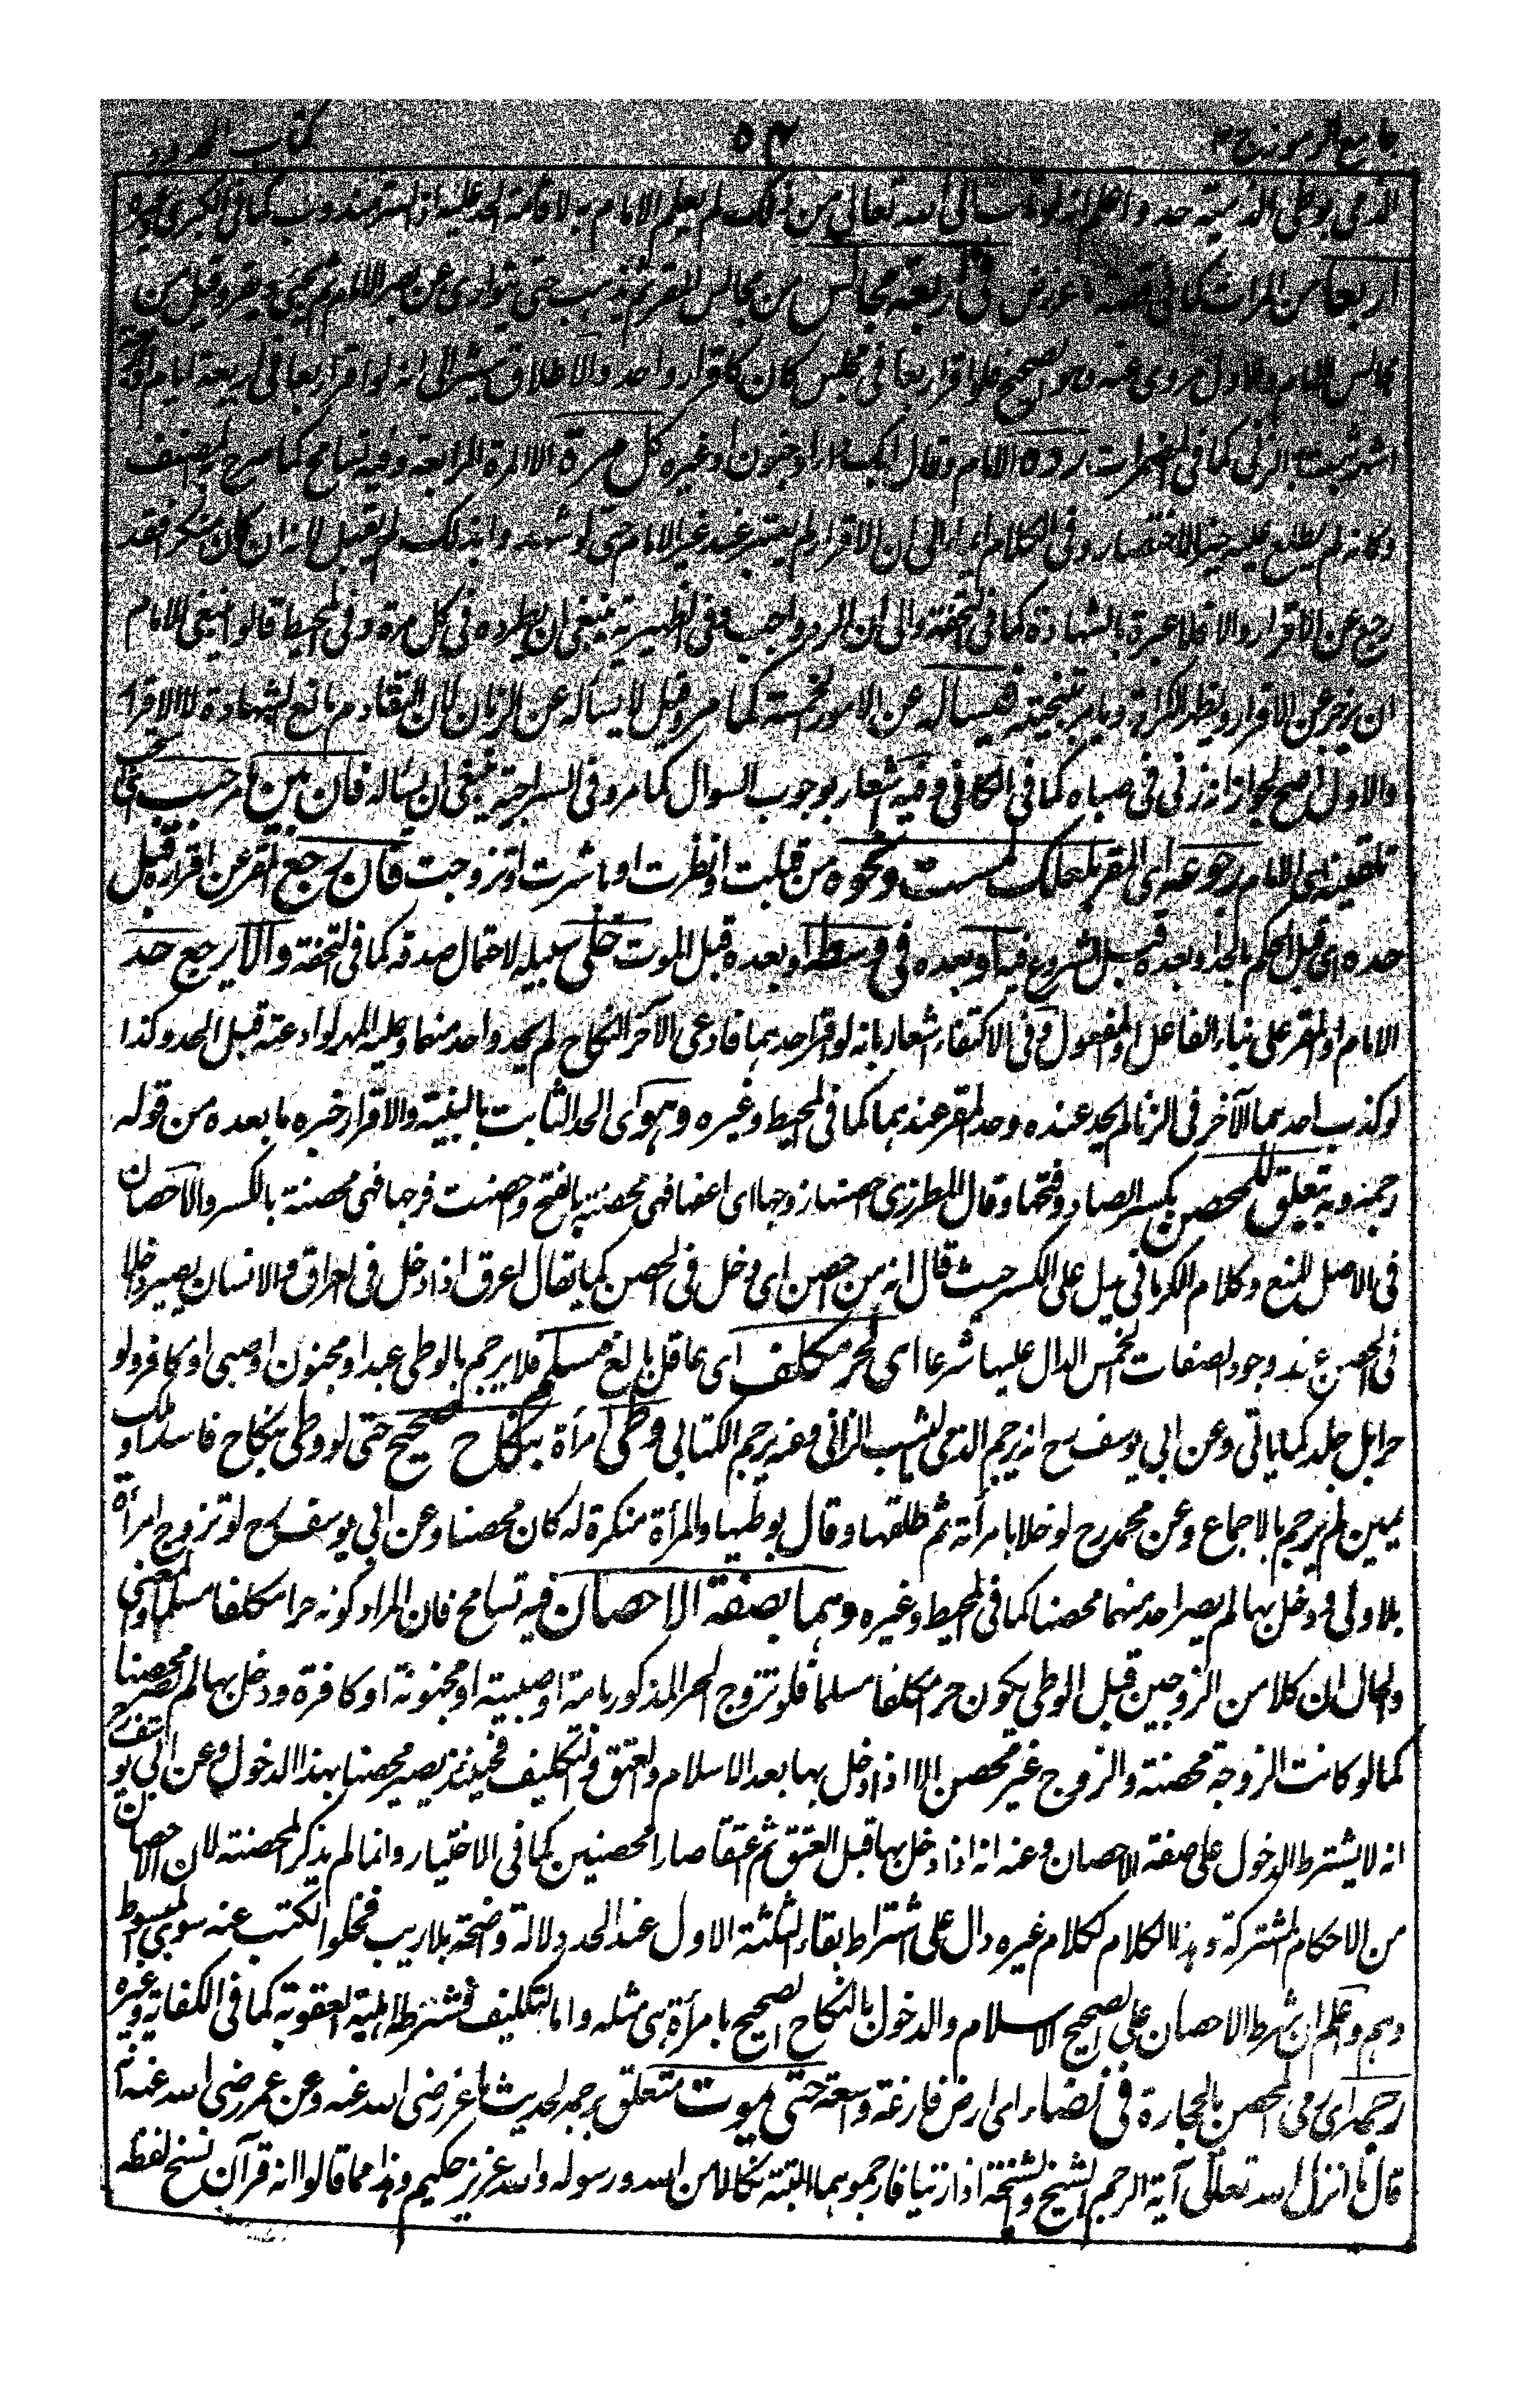 جامع الرموز ج ٣ ٥٣ كتاب الحدود
الذمى بوطى الذمية حد واعلم انه لو تاب الى الله تعالى من ذلك لم يعلم الامام به لاقامة الحد عليه اذ الستر مندوب كما فى الكبرى وغيره
اربعا من المرات كما فى قصة ماعز رض فى اربعة مجالس من مجالس المقر ثم يذهب حتى يتوارى عن بصر الامام ثم يجيئ ويقر وقيل من
مجالس الامام والاول مروى عنه وهو الصحيح فلو اقر اربعا فى مجلس كان كاقرار واحد والاطلاق مشير الى انه لو اقر اربعا فى اربعة ايام او اربعة
اشهر ثبت الزنى كما فى المضمرات رده الامام وقال ابك داء او جنون او غيره كل مرة الا المرة الرابعة وفيه تسامح كما صرح به المصنف
وكانه لم يطلع عليه حين الاختصار وفى الكلام ايماء الى ان الاقرار لم يعتبر عند غير الامام حتى لو شهدوا بذلك لم يقبل لانه ان كان منكرا فقد
رجع عن الاقرار والا فلا عبرة بالشهادة كما فى التحفة والى ان الرد واجب وفى الظهيرية ينبغى ان يطرده فى كل مرة وفى المحيط قالوا ينبغى للامام
ان يزجر عن الاقرار ويظهر الكراهة ويامر بتنحيته فيسأله عن الامور الخمسة كما مر وقيل لا يسأله عن الزمان لان التقادم مانع الشهادة لا الاقرار
والاول اصح لجواز انه زنى فى صباه كما فى الكافى وفيه اشعار بوجوب السوال كما مر وفى السراجية ينبغى ان يسأله فان بين ما مر حب يستحب
تلقينه اى الامام رجوعه اى المقر بلعلك لمست ونحوه من قبلت او نظرت او باشرت او تزوجت فان رجع المقر عن اقراره قبل
حده اى قبل الحكم بالحد او بعده قبل الشروع فيه او بعده فى وسطه او بعده قبل الموت خلى سبيله لاحتمال صدقه كما فى التحفة والا يرجع حد
الامام او المقر على بناء الفاعل او المفعول وفى الاكتفاء اشعار بانه لو اقر احدهما فادعى الآخر النكاح لم يحد واحد منهما وعليه المهر لو ادعته قبل الحد وكذا
لو كذب احدهما الآخر فى الزنا لم يحد عنده وحد المقر عندهما كما فى المحيط وغيره وهو اى الحد الثابت بالبينة والاقرار خبره ما بعده من قوله
رجمه وبه تعلق للمحصن بكسر الصاد وفتحها وقال المطرزى احصنها زوجها اى اعفها فهى محصنة بالفتح واحصنت فرجها فهى محصنة بالكسر والاحصان
فى الاصل المنع وكلام الكرمانى يميل على الكسر حيث قال انه من احصن اى دخل فى الحصن كما يقال اعرق اذا دخل فى العراق والانسان يصير داخلا
فى الحصن عند وجود الصفات الخمس الدال عليها شرعا اى لحر مكلف اى عاقل بالغ مسلم فلا يرجم بالوطى عبد او مجنون او صبى او كافر ولو
حرا بل جلد كما ياتى وعن ابى يوسف رح انه يرجم الذمى الثيب الزانى وعنه يرجم الكتابى وطى امرأة بنكاح صحيح حتى لو وطى بنكاح فاسد او ملك
يمين لم يرجم بالاجماع وعن محمد رح لو خلا بامرأته ثم طلقها وقال بوطيها والمرأة منكرة له كان محصنا وعن ابى يوسف رح لو تزوج امرأة
بلا ولى ودخل بها لم يصر احد منهما محصنا كما فى المحيط وغيره وهما بصفة الاحصان فيه تسامح فان المراد كونه حرا مكلفا مسلما والمعنى
والحال ان كلا من الزوجين قبل الوطى يكون حرا مكلفا مسلما فلو تزوج الحر المذكور بامة او صبية او مجنونة او كافرة ودخل بها لم يصر محصنا
كما لو كانت الزوجة محصنة والزوج غير محصن الا اذا دخل بها بعد الاسلام والعتق والتكليف فحينئذ يصير محصنا بهذا الدخول وعن ابى يوسف رح
انه لا يشترط الدخول على صفة الاحصان وعنه انه اذا دخل بها قبل العتق ثم عتقا صارا محصنين كما فى الاختيار وانما لم يذكر المحصنة لان الاحصان
من الاحكام المشتركة وهذا الكلام ككلام غيره دال على اشتراط بقاء الثلثة الاول عند الحد دلالة واضحة بلا ريب فخلوا الكتب عنه سوى المبسوط
وهم واعلم ان شرط الاحصان على الصحيح الاسلام والدخول بالنكاح الصحيح بامرأة هى مثله واما التكليف فشرط اهلية العقوبة كما فى الكفاية وغيره
رجمه اى رمى المحصن بالحجارة فى فضاء اى ارض فارغة واسعة حتى يموت متعلق برجمه لحديث ماعز رضى الله عنه وعن عمر رضى الله عنه انه
قال مما انزل الله تعالى آية الرجم الشيخ والشيخة اذا زنيا فارجموهما البتة نكالا من الله ورسوله والله عزيز حكيم وهذا مما قالوا انه قرآن نسخ لفظه